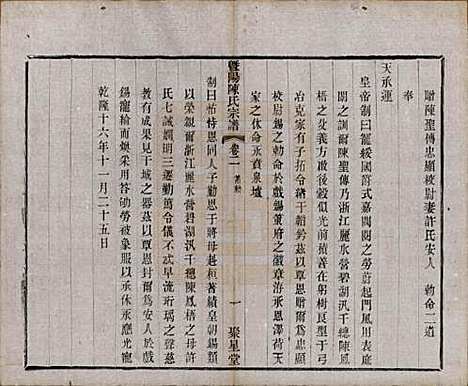 贈陳聖傳忠顯校尉妻許氏安人 勅命二道
奉
天承運
皇帝制曰寵綏國爵式嘉閥閱之勞蔚起門風用表庭
闈之訓爾陳聖傳乃浙江麗水營碧湖汛千總陳鳳
梧之父義方啟後穀似光前積善在躬樹良型于弓
冶克家有子拓令緒于韜鈐茲以覃恩贈爾為忠顯
校尉錫之勅命於戲錫策府之徽章洊承恩澤荷天
家之休命永賁泉壚
暨陽陳氏宗譜
卷二 誥勅
一 聚星堂
制曰怙恃恩同人子勤思于將母赳桓著績皇朝錫類
以榮親爾許氏乃浙江麗水營碧湖汛千總陳鳳梧之母
氏七誡嫻明三遷勤篤令儀不忒早流珩瑀之聲慈
教有成果見干城之器茲以覃恩封爾為安人於戲
錫寵綸而煥采用答劬勞被象服以承休永膺光寵
乾隆十六年十一月二十五日